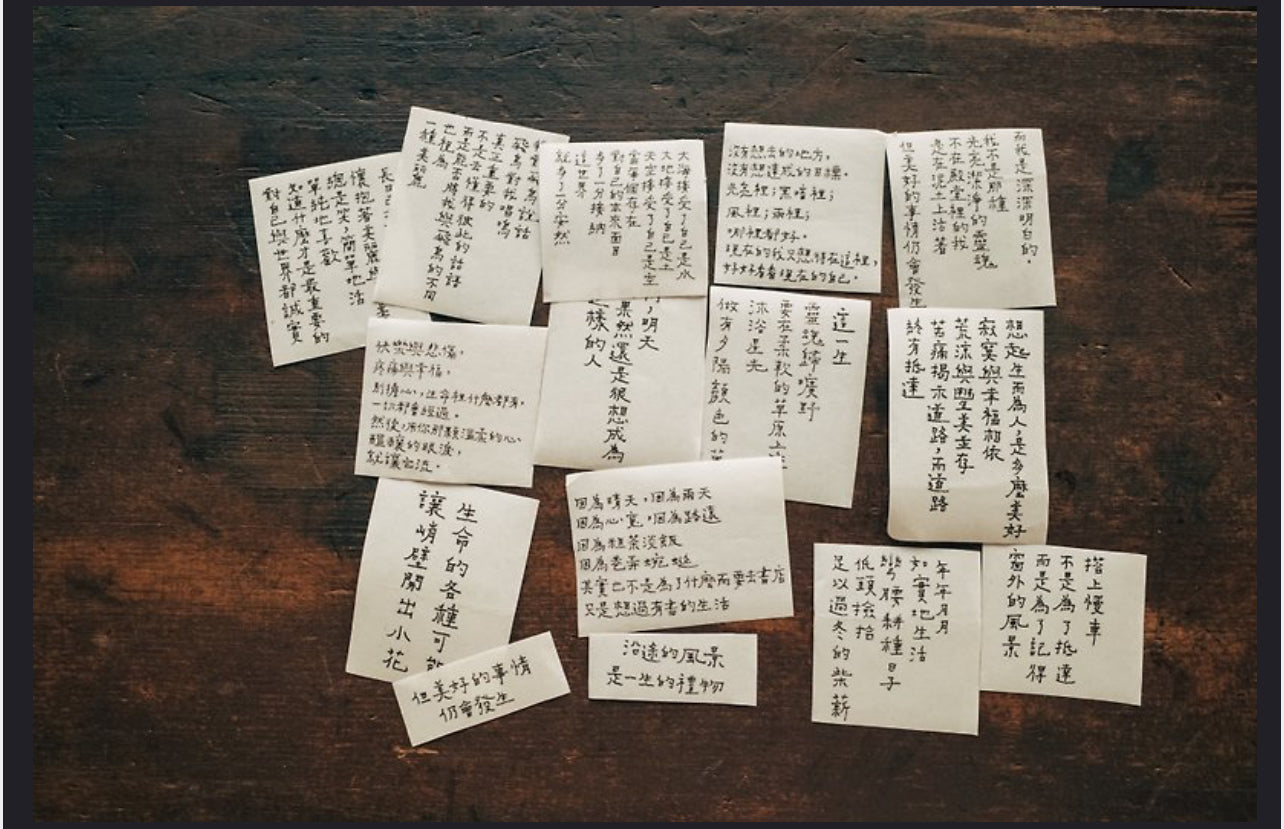 讓抱著美麗
總是笑，簡單地活
單純地喜歡
知道什麼才是最重要的
對自己與世界都誠實
對我唱歌
真正重要的
不是懂
而是能否
也視為
一種美麗
大海接受了自己是水
大地接受了自己是土
天空接受了自己是空
當每個存在
對自己的本來面目
多了一分接納
這世界
就多了一分安然
沒有想去的地方，
沒有想達成的目標。
光亮裡；黑暗裡；
風裡；雨裡；
哪裡都好。
現在的我只想待在這裡，
好好看看現在的自己。
而我是深深明白的。
我不是那種
光亮潔淨的靈魂
不在殿堂裡的我
是在泥土上活著
但美好的事情仍會發生
快樂與悲傷，
疼痛與幸福，
別擔心，生命裡什麼都有，
一切都會經過。
然後，用你那顆溫柔的心，
醞釀的眼淚，
就讓它流。
，明天
果然還是很想成為
樣的人
這一生
靈魂歸曠野
要在柔軟的草原上
沐浴星光
做有夕陽顏色的
想起生而為人，是多麼美好
寂寞與幸福相依
荒涼與豐美並存
苦痛揭示道路，而道路
終有抵達
生命的各種可能
讓峭壁開出小花
因為晴天，因為雨天
因為心寬，因為路遠
因為粗茶淡飯
因為巷弄蜿蜒
其實也不是為了什麼而要去書店
只是想過有書的生活
年年月月
如實地生活
彎腰耕種日子
低頭撿拾
足以過冬的柴薪
搭上慢車
不是為了抵達
而是為了記得
窗外的風景
但美好的事情
仍會發生
沿途的風景
是一生的禮物